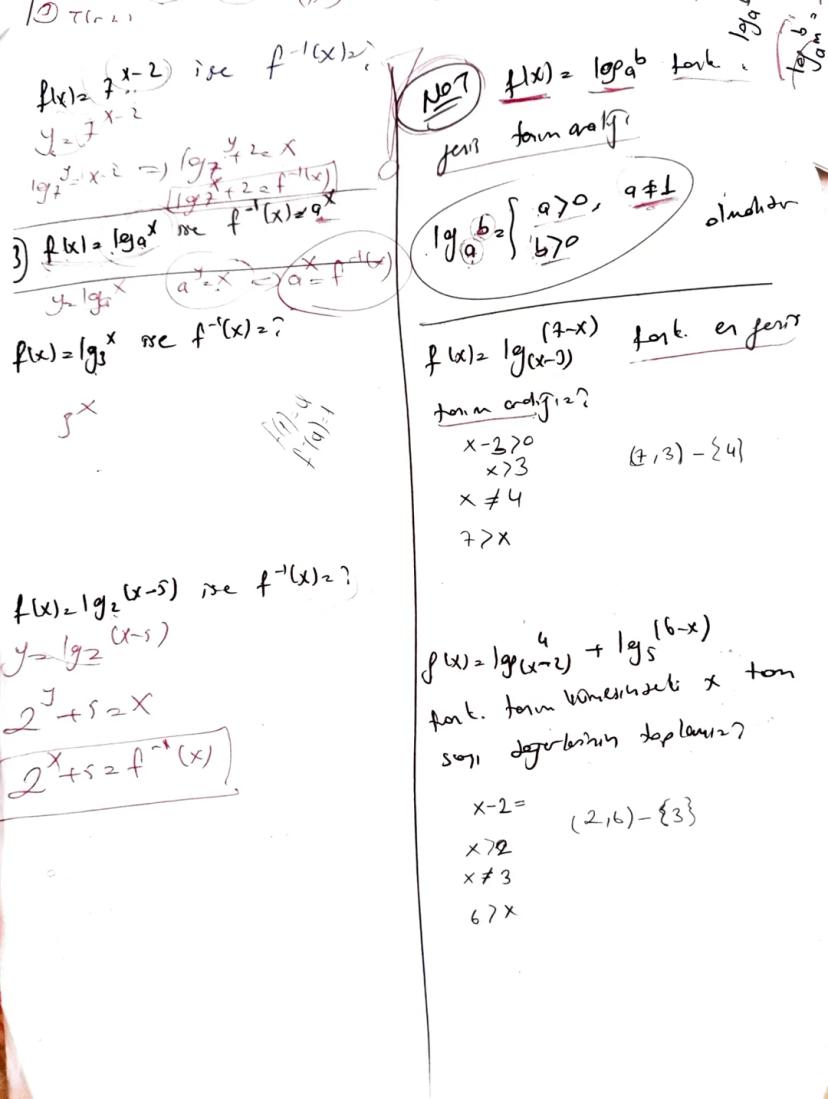 f(x) = 7^(x-2) ise f⁻¹(x)=?
y = 7^(x-2)
log₇^y = x-2 => log₇^y + 2 = x
log₇^x + 2 = f⁻¹(x)
3) f(x) = log_a^x ise f⁻¹(x) = a^x
y = log_a^x a^y = x => a^x = f⁻¹(x)
f(x) = log₃^x ise f⁻¹(x) = ?
3^x
f(1)=4
f⁻¹(4)=1
f(x) = log₂^(x-5) ise f⁻¹(x) = ?
y = log₂^(x-5)
2^y + 5 = x
2^x + 5 = f⁻¹(x)
NOT f(x) = log_a^b fonk.
geniş tanım aralığı
log_a^b = { a>0, a≠1
b>0
olmalıdır
f(x) = log_(x-3)^(7-x) fonk. en geniş
tanım aralığı?
x-3>0
x>3
x ≠ 4
7>x
(7,3) - {4}
f(x) = log_(x-2)^4 + log₅^(6-x)
fonk. tanım kümesindeki x tam
sayı değerlerinin toplamı=?
x-2=
x>2
x ≠ 3
6>x
(2,6) - {3}